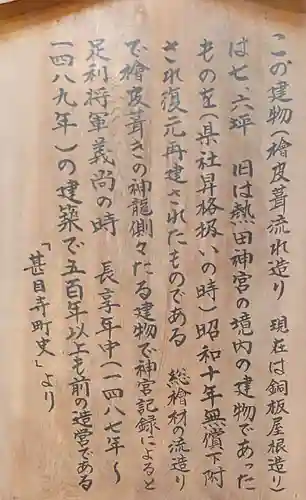 この建物（檜皮葺流れ造り　現在は銅板屋根造り）
は七、六坪　旧は熱田神宮の境内の建物であった
ものを（県社昇格扱いの時）昭和十年無償下附
され復元再建されたものである　総檜材の流造り
で檜皮葺きの神龍側々たる建物で神宮記録によると
足利将軍義尚の時　長享年中（一四八七年～
一四八九年）の建築で五百年以上も前の造営である
「甚目寺町史」より